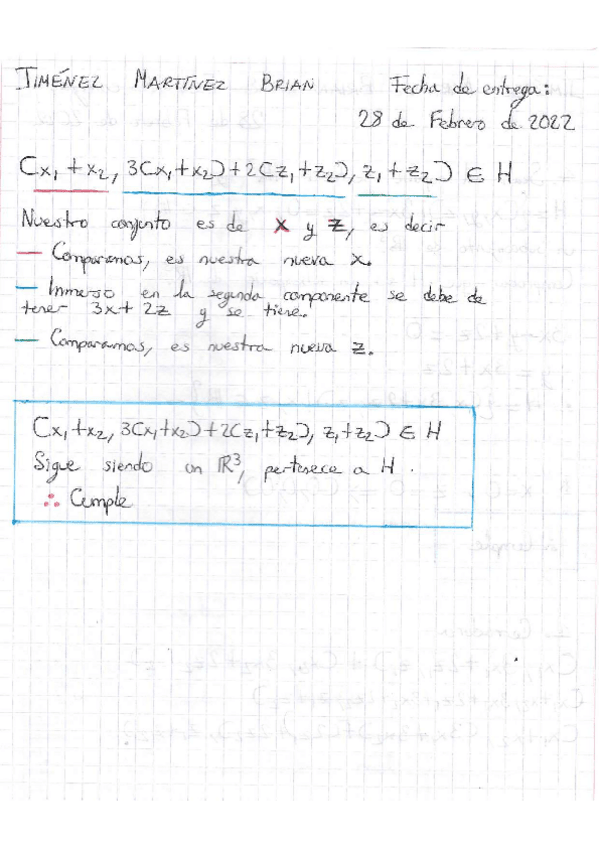 JIMÉNEZ MARTÍNEZ BRIAN Fecha de entrega:
28 de Febrero de 2022
(x₁ + x₂, 3(x₁+x₂)+2(z₁+z₂), z₁+z₂) ∈ H
Nuestro conjunto es de x y z, es decir
— Comparamos, es nuestra nueva x.
— Inmerso en la segunda componente se debe de
tener 3x+2z y se tiene.
— Comparamos, es nuestra nueva z.
(x₁+x₂, 3(x₁+x₂)+2(z₁+z₂), z₁+z₂) ∈ H
Sigue siendo un ℝ³, pertenece a H.
∴ Cumple